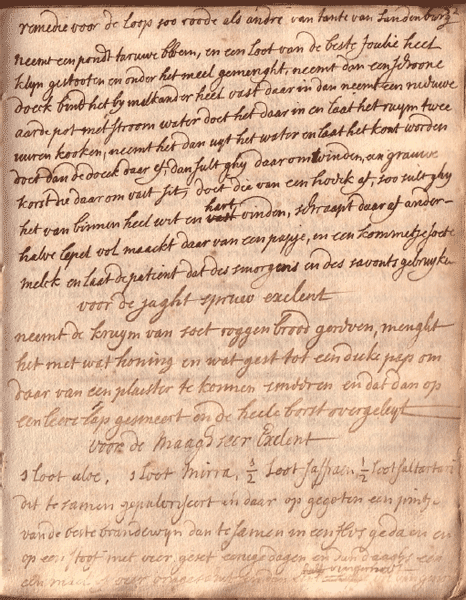 remedie voor de loop soo roode als andre van tante van Lindenburg
neemt een pondt taruwe bloem, en een loot van de beste foulie heel
kleyn gestooten en onder het meel gemenght, neemt dan een schoone
doeck bind het by malkander heel vast daar in dan neemt een nieuwe
aarde pot met stroom water doet het daar in en laet het ruym twee
uuren kooken, neemt het dan uyt het water en laat het kout worden
doet dan de doeck daar af, dan sult ghy daar om vinden, een grauwe
korst die daar om vast sit, doet die van een hoeck af, soo sult ghy
het van binnen heel wit en hart vinden, schraapt daar af ander-
halve lepel vol maackt daar van een papje, in een kommetje soete
melck en laat de patient dat des morgens en des savonts gebruyken
voor de jaght spruw exelent
neemt de kruym van soet roggen broot gewreven, menght
het met wat honing en wat gest tot een dicke pap om
daar van een plaester te konnen smeeren en dat dan op
een leere lap gesmeert on de heele borst overgeleyt
voor de Maagd seer Exelent
1 loot aloe, 1 loot Mirra, 1/2 loot saffraen, 1/2 loot saltartari
dit te samen gepulveriseert en daar op gegoten een pintje
van de beste brandewyn dan te samen in een fles gedaen en
op een stoof met vier geset eenige dagen en